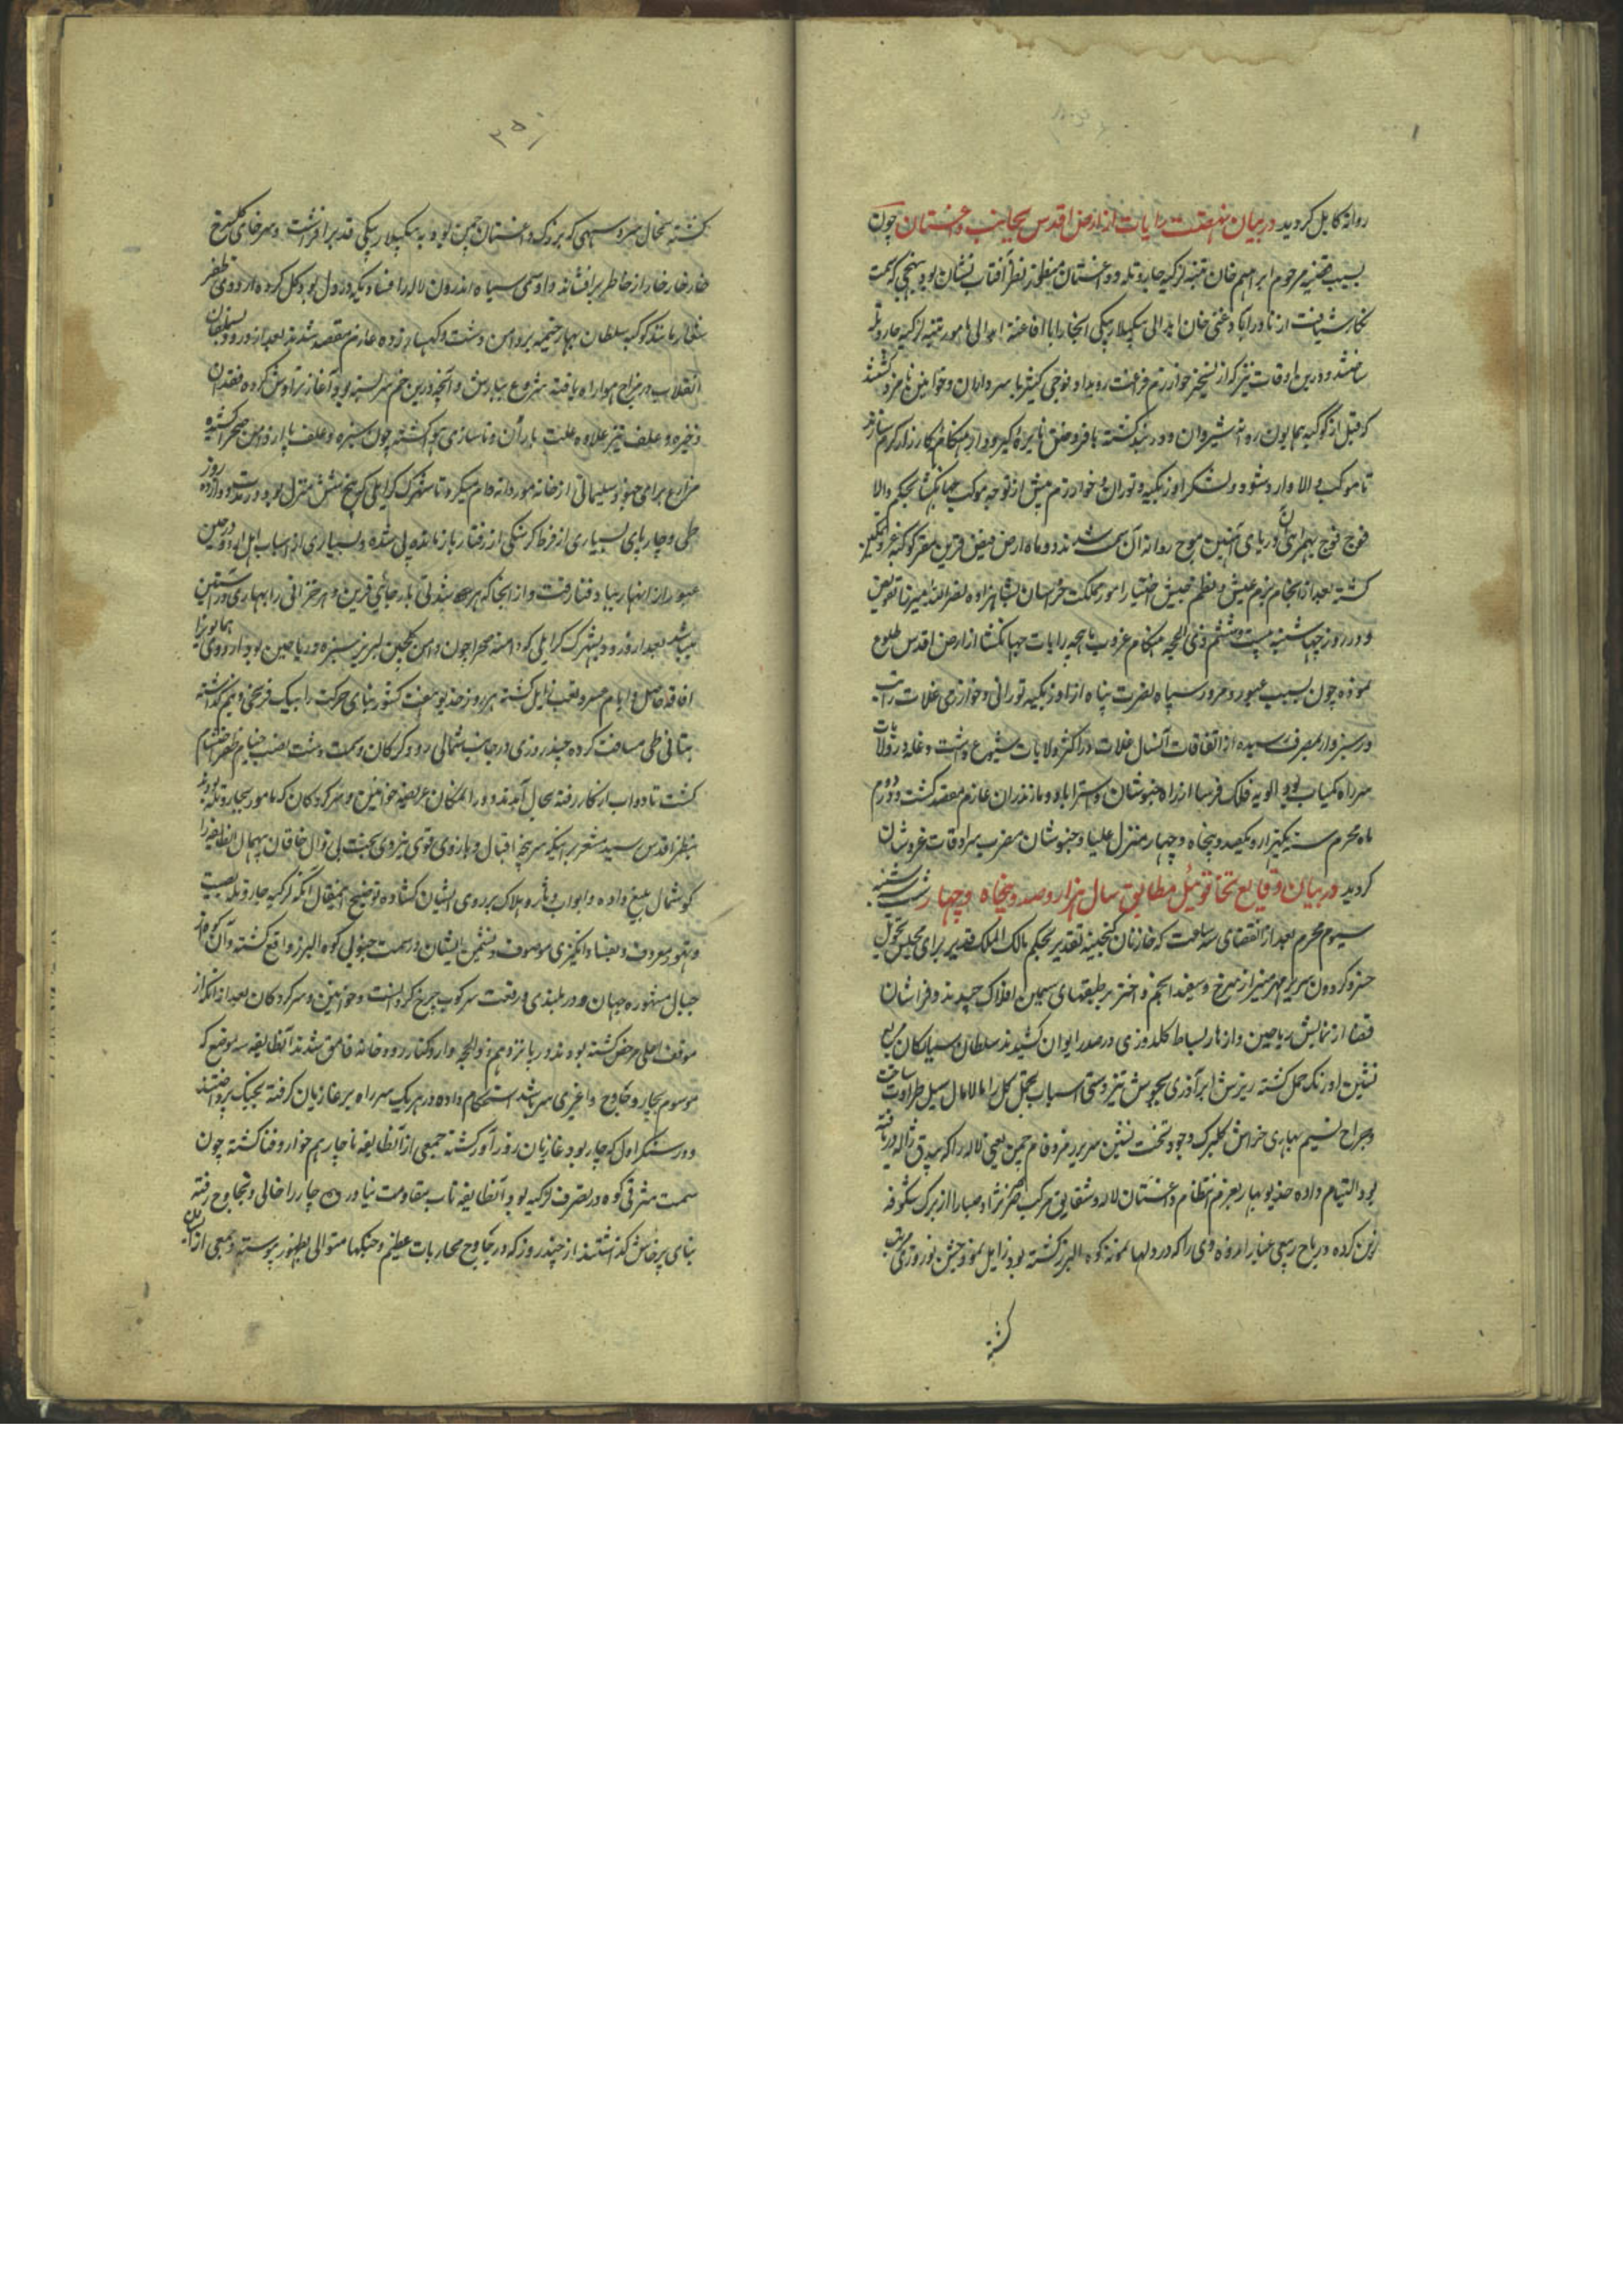 روانهٔ کابل کردید در بیان نهضت رایات از ارض اقدس بجانب داغستان چون
بسبب قضیه مرحوم ابراهیم خان تنبیه لزکیه جار و تله و داغستان نظر آفتاب نشان بود بنهجی که سمت
نکارش یافت از نادراباد غنی خان ابدالی بیکلربیکی انجا را با افاغنه ابدالی مامور تنبیه لزکیه جار و تله
ساختند و درین اوقات نیز که از تسخیر خوارزم فراغت رویداد فوجی کثیر با سرداران و خوانین نامزد کشتند
که قبل از کوکبه همایون روانه شیروان و دربند کشته بافروختن نایره کیر و دار هنکامهٔ کارزار کرم سازند
تا موکب والا وارد شود و لشکر اوزبکیه و توران و خوارزم پیش از توجه موکب جهانکشا بحکم والا
فوج فوج بهمراهی آن دریای آهنین موج روانه آن سمت شدند و دو ماه ارض فیض قرین مقر کوکبه عز و تمکین
کشته بعد از انجام بزم عیش و نظم جیش اختیار امور مملکت خراسان بشاهزاده نصرالله میرزا تفویض
و در روز چهارشنبه بیست و ششم ذی الحجه هنکام غروب رایات جهانکشا از ارض اقدس طلوع
نموده چون بسبب عبور و مرور سپاه نصرت پناه از اوزبکیه تورانی و خوارزمی غلات راه
و سبزوار بمصرف رسیده از اتفاقات آنسال غلات در اکثر ولایات شیوع داشت و غله در ولایات
سر راه کمیاب بود الویه فلک فرسا از راه خبوشان و استراباد و مازندران عازم مقصد کشت و در دوم
ماه محرم سنه یکهزار و یکصد و پنجاه و چهار منزل علیا و خبوشان مضرب سرادقات عز و شان
کردید در بیان وقایع تخاقوئیل مطابق سال هزار و صد و پنجاه و چهار شب شنبه
سیوم محرم بعد از انقضای سه ساعت که خازنان کنجینه تقدیر بحکم مالک الملک قدیر برای مجلس تحویل
خسرو کردون سریر مهر منیر از سرخ و سفید انجم و اختر بر طبقهای سیمین افلاک چیدند و فراشان
قضا از نمایش ریاحین و ازهار بساط کلدوزی در صدر ایوان کشیدند سلطان سیارکان مربع
نشین اورنک حمل کشته ریزش ابر آذری بجوشش تیزدستی اسباب تجمل کل را مالامال سیل طراوت ساخت
و جراح نسیم بهاری خراش کلبرک وجود تخت نشین سریر زمرد فام چمن یعنی لاله را که ژاله دریافته
بود التیام داده خدیو بهار بعزم انتظام داغستان لاله و شقایق مرکب صرصر نژاد صبا را از برک شکوفه
زین کرده و ریاح ربیعی غبار اندوه دی را که در دلها نمونه کوه البرز کشته بود زایل نمود جشن نوروزی مرتب
کشته
۳۵۰
کشته بنحال سرو سهی که بزرک داغستان چمن بود به بیکلربیکی قد برافراشت و سرخای کلسرخ
خار خار خار از خاطر برافشانه و اوسمی سیاه اندرون لاله را فساد یکه در دل بود کل کرده اردوی ظفر
شعار مانند کوکبه سلطان بهار خیمه بر دامن دشت و کهسار زده عازم مقصد شدند بعد از ورود بسملقان
انقلاب در مزاج هوا راه یافته شروع ببارش و آنچه درین خم سربسته بود آغاز تراوش کرده فقدان
ذخیره و علف نیز علاوه علت باران و ناسازی هوا کشته چون سبزه و علف پا از دامن صحرا کشیده
مزارع برای جنود سلیمانی از خانه مور دانه وام میکرد تا شهرک کرایلی که پنج شش منزل بود در مدت دوازده روز
طی و چارپای بسیاری از فرط کرسنکی از رفتار بازمانده پل شده و بسیاری از اسباب اهل اردو در حین
عبور از انهار بباد فنا رفت و از آنجا که هر شدتی با رجائی قرین و هر خزانی را بهاری در آستین
میباشد بعد از ورود بشهرک کرایلی که دامنه صحرا چون دامن کلچین لبریز سبزه و ریاحین بود اردوی همایون را
افاقه حاصل و ایام عسر و تعب زایل کشته هر روز خدیو هفت کشور بنای حرکت را بیک فرسخی و نیم کذاشته
بتانی طی مسافت کرده چند روزی در جانب شمالی رود کرکان و سمت دشت نصب خیام ظفر احتشام
کشت تا دواب از کار رفته بحال آمدند و در انمکان عریضه خوانین و سرکردکان که مامور بجار و تله بودند
بنظر اقدس رسید مشعر بر اینکه سرپنجهٔ اقبال و بازوی قوی نیروی بخت بی زوال خاقان بیهمال انطایفه را
کوشمال بلیغ داده و ابواب هلاک بر روی ایشان کشاده توضیح اینمقال آنکه لزکیه جار و تله بصیت
و تهور معروف و بفساد انکیزی موصوف و نشیمن ایشان در سمت جنوبی کوه البرز واقع کشته و آن کوه از
جبال مشهوره جهان و در بلندی و رفعت سرکوب چرخ کردانست و خوانین و سرکردکان بعد از آنکه از
موقف اعلی مرخص کشته بودند در پانزدهم ذوالحجه وارد کنار رودخانه قانق شدند آنطایفه سه موضع که
موسوم بجار و جاوخ و اغزی بر باشد استحکام داده در هر یک سر راه بر غازیان کرفته بجنک پرداختند
و در سنکر اول که جار بود غازیان زورآور کشته جمعی از آنطایفه نابکار هم خوار و فنا کشته چون
سمت مشرقی کوه در تصرف لزکیه بود آنطایفه تاب مقاومت نیاورده جار را خالی و بجاوخ رفته
بنای پرخاش کذاشتند از چند روز که در جاوخ محاربات عظیم و جنکها متوالی بظهور پیوسته جمعی از ایشان